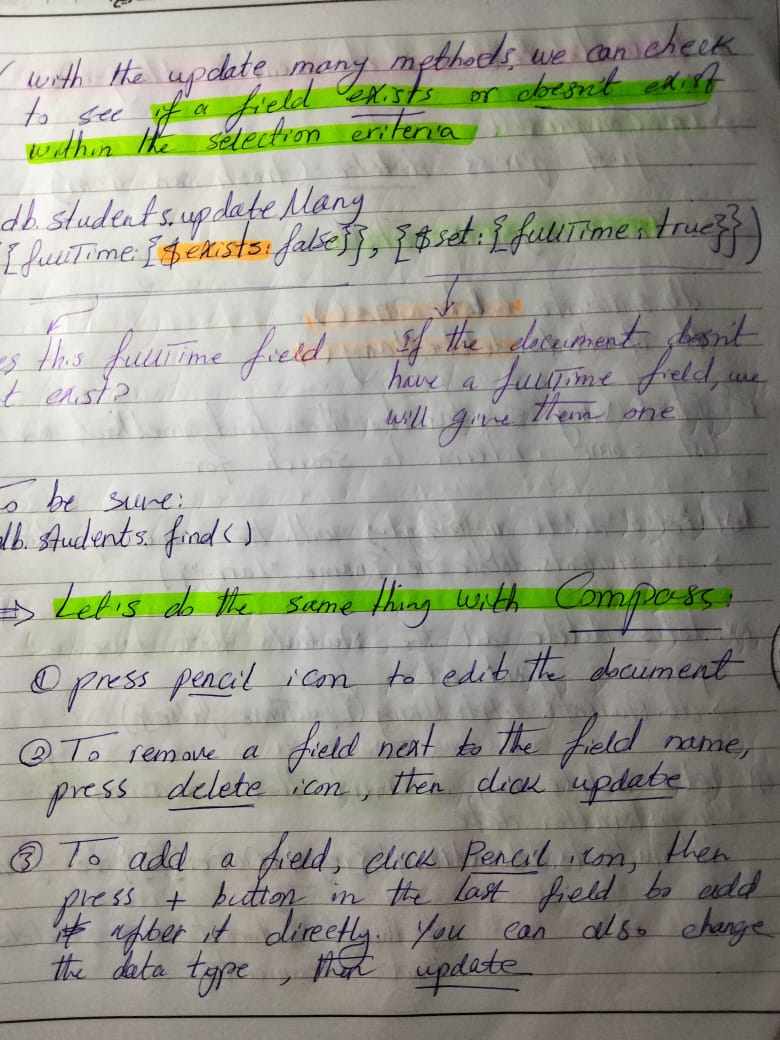 with the update many methods, we can check
to see if a field exists or doesn't exist
within the selection criteria
db.students.updateMany
{fullTime:{$exists:false}}, {$set:{fullTime:true}})
this fullTime field
t exist?
If the document doesn't
have a fullTime field, we
will give them one
To be sure:
db.students.find()
⇒ Let's do the same thing with Compass:
① press pencil icon to edit the document
② To remove a field next to the field name,
press delete icon, then click update
③ To add a field, click Pencil icon, then
press + button in the last field to add
it after it directly. You can also change
the data type, then update